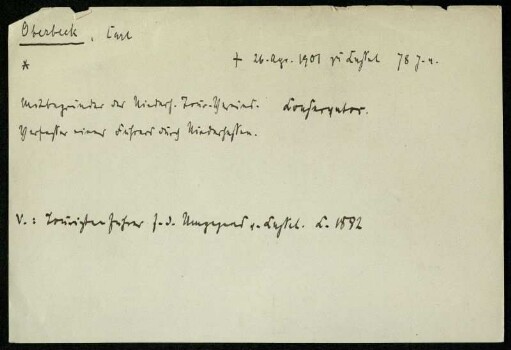 Oberbeck, Carl
* † 26. Apr. 1901 zu Cassel 78 J. a.
Mitbegründer der Niederh. Tour.-Vereins. Conservator.
Verfasser eines Führers durch Niederhessen.
V.: Touristenführer f. d. Umgegend v. Cassel. C. 1892